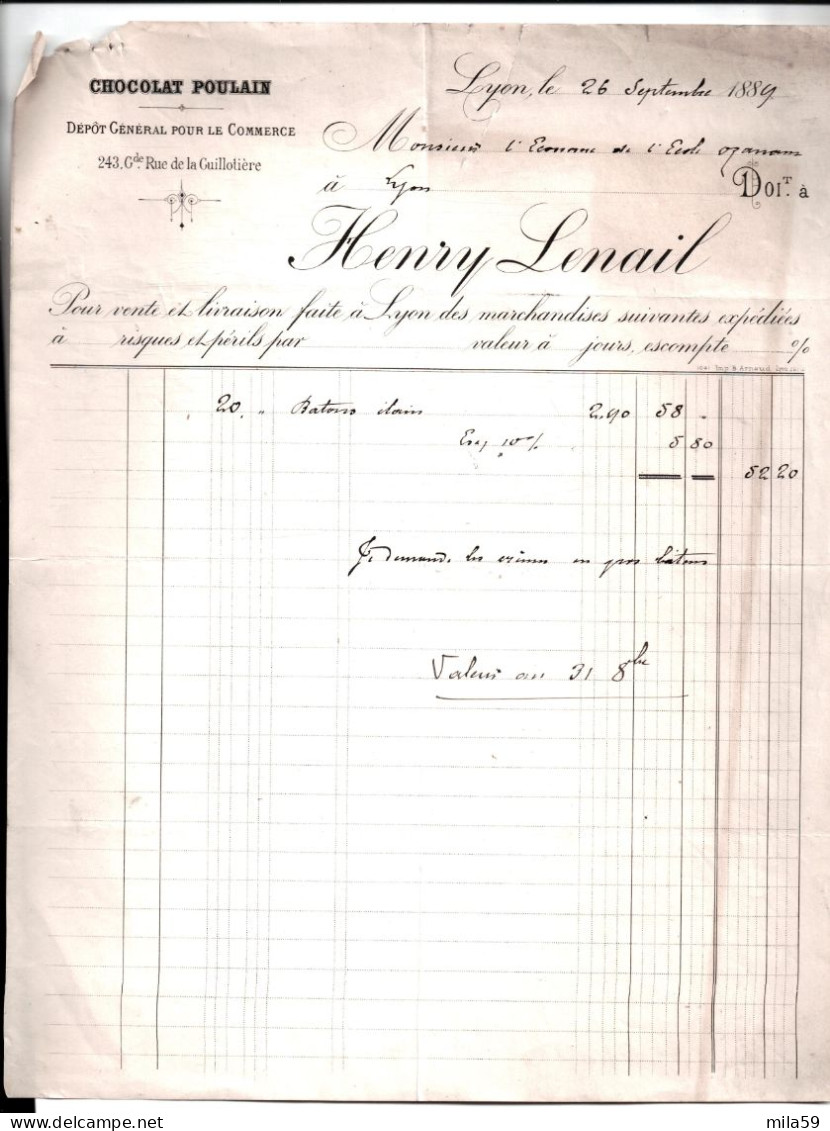 CHOCOLAT POULAIN
DÉPÔT GÉNÉRAL POUR LE COMMERCE
243, Gde. Rue de la Guillotière
Lyon, le 26 Septembre 1889
Monsieur l'Econome de l'Ecole Ozanam
à Lyon DOIT. à
Henry Lenail
Pour vente et livraison faite à Lyon des marchandises suivantes expédiées
à risques et périls par valeur à jours, escompte %
Imp. B. Arnaud, Lyon
20 " Batons 2.90 58 "
Esc, 10 % 5 80
52 20
Je demande les crèmes en gros bâtons
Valeur au 31 8bre
delcampe.net
mila59